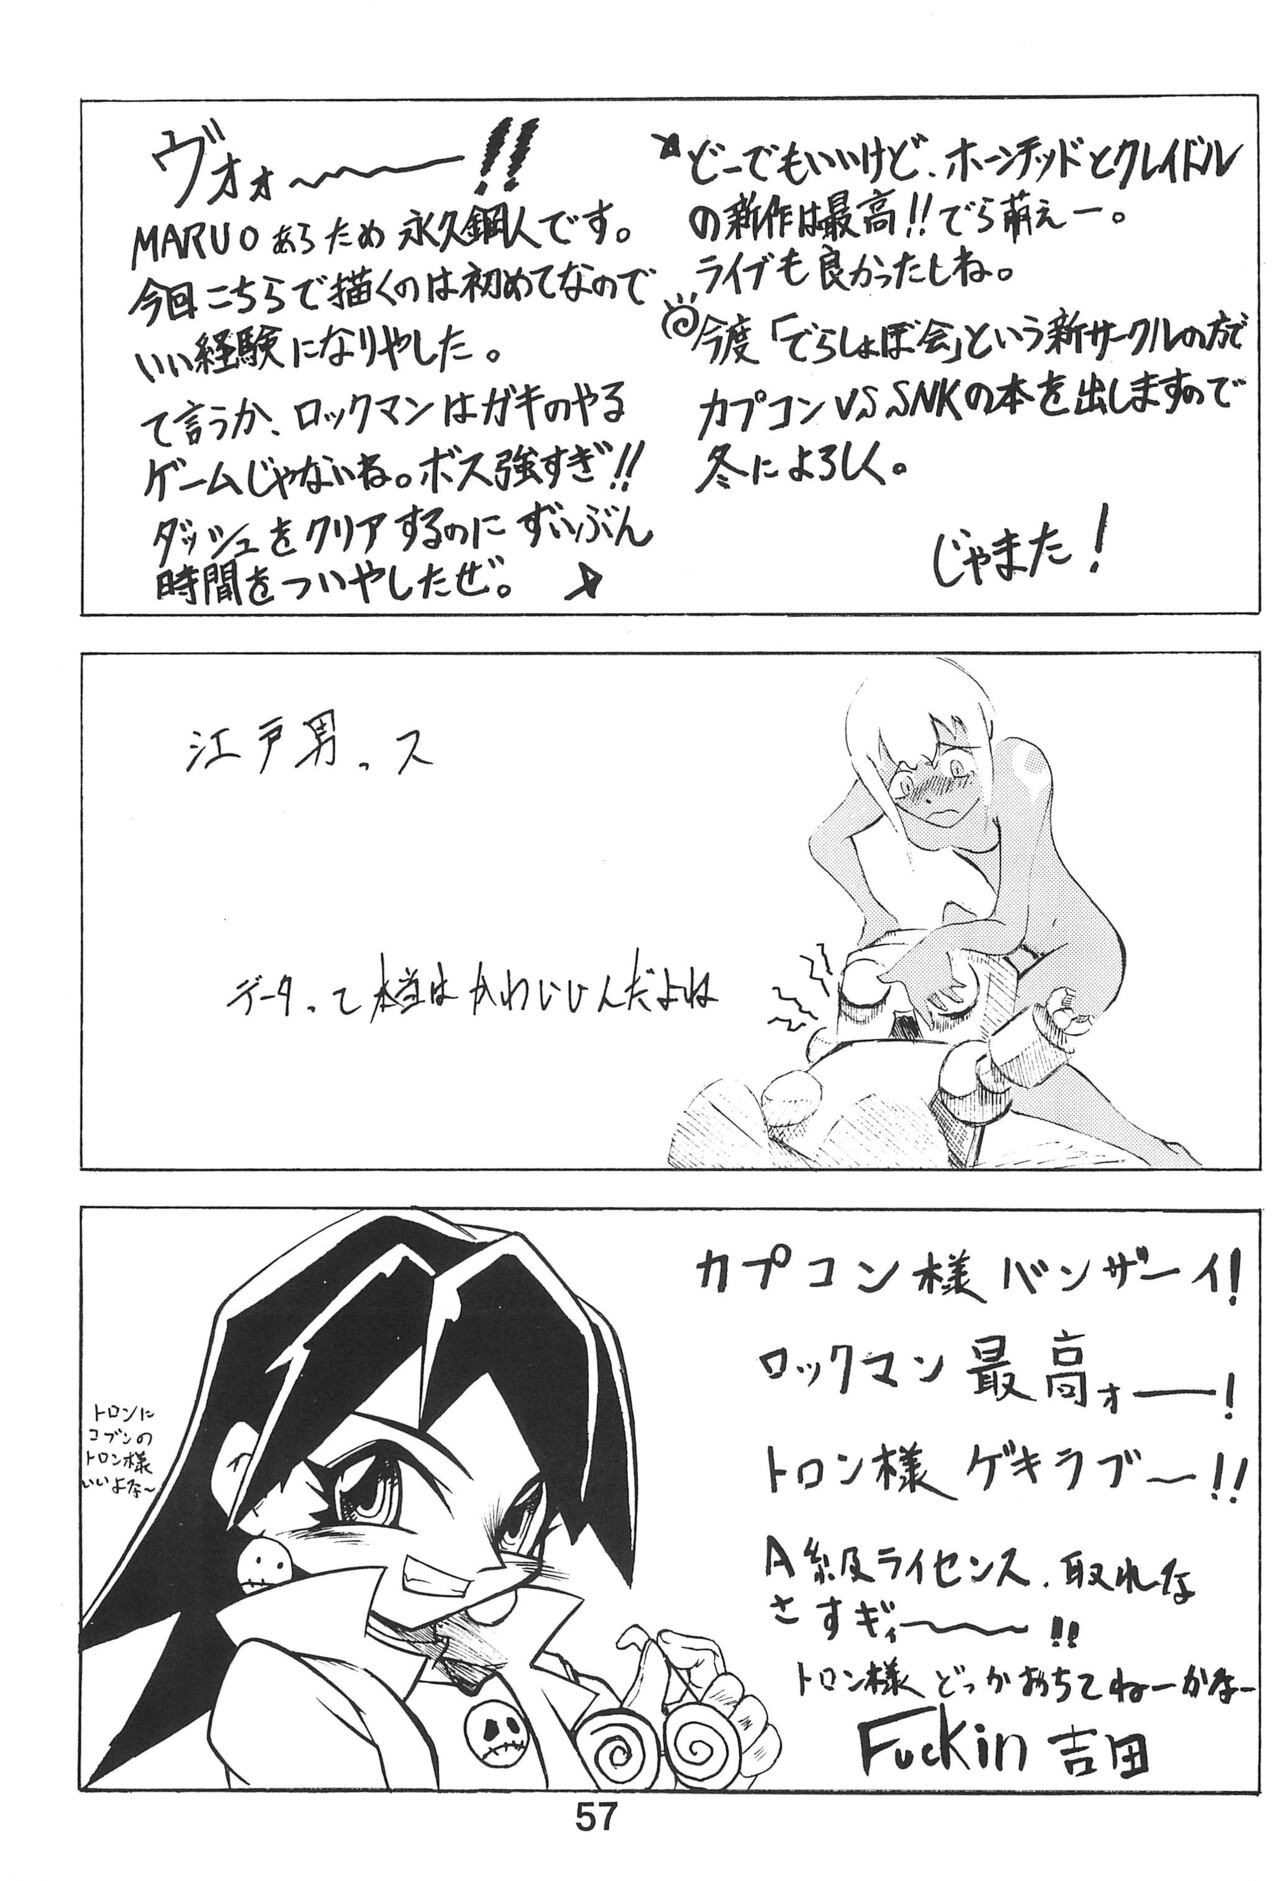 ヴォォ〜!!
MARUOあらため永久鋼人です。
今回こちらで描くのは初めてなので
いい経験になりやした。
て言うか、ロックマンはガキのやる
ゲームじゃないね。ボス強すぎ!!
ダッシュをクリアするのにずいぶん
時間をついやしたぜ。
どーでもいいけど、ホーンテッドとクレイドル
の新作は最高!!でら萌えー。
ライブも良かったしね。
今度「でらしょぼ会」という新サークルの方で
カプコンVS SNKの本を出しますので
冬によろしく。
じゃまた!
江戸男っス
データって本当はかわいいんだよね
トロンに
コブンの
トロン様
いいよな〜
カプコン様バンザーイ!
ロックマン最高ォー!
トロン様ゲキラブ〜!!
A級ライセンス、取れな
さすギィ〜!!
トロン様どっかおちてねーかなー
Fuckin 吉田
57